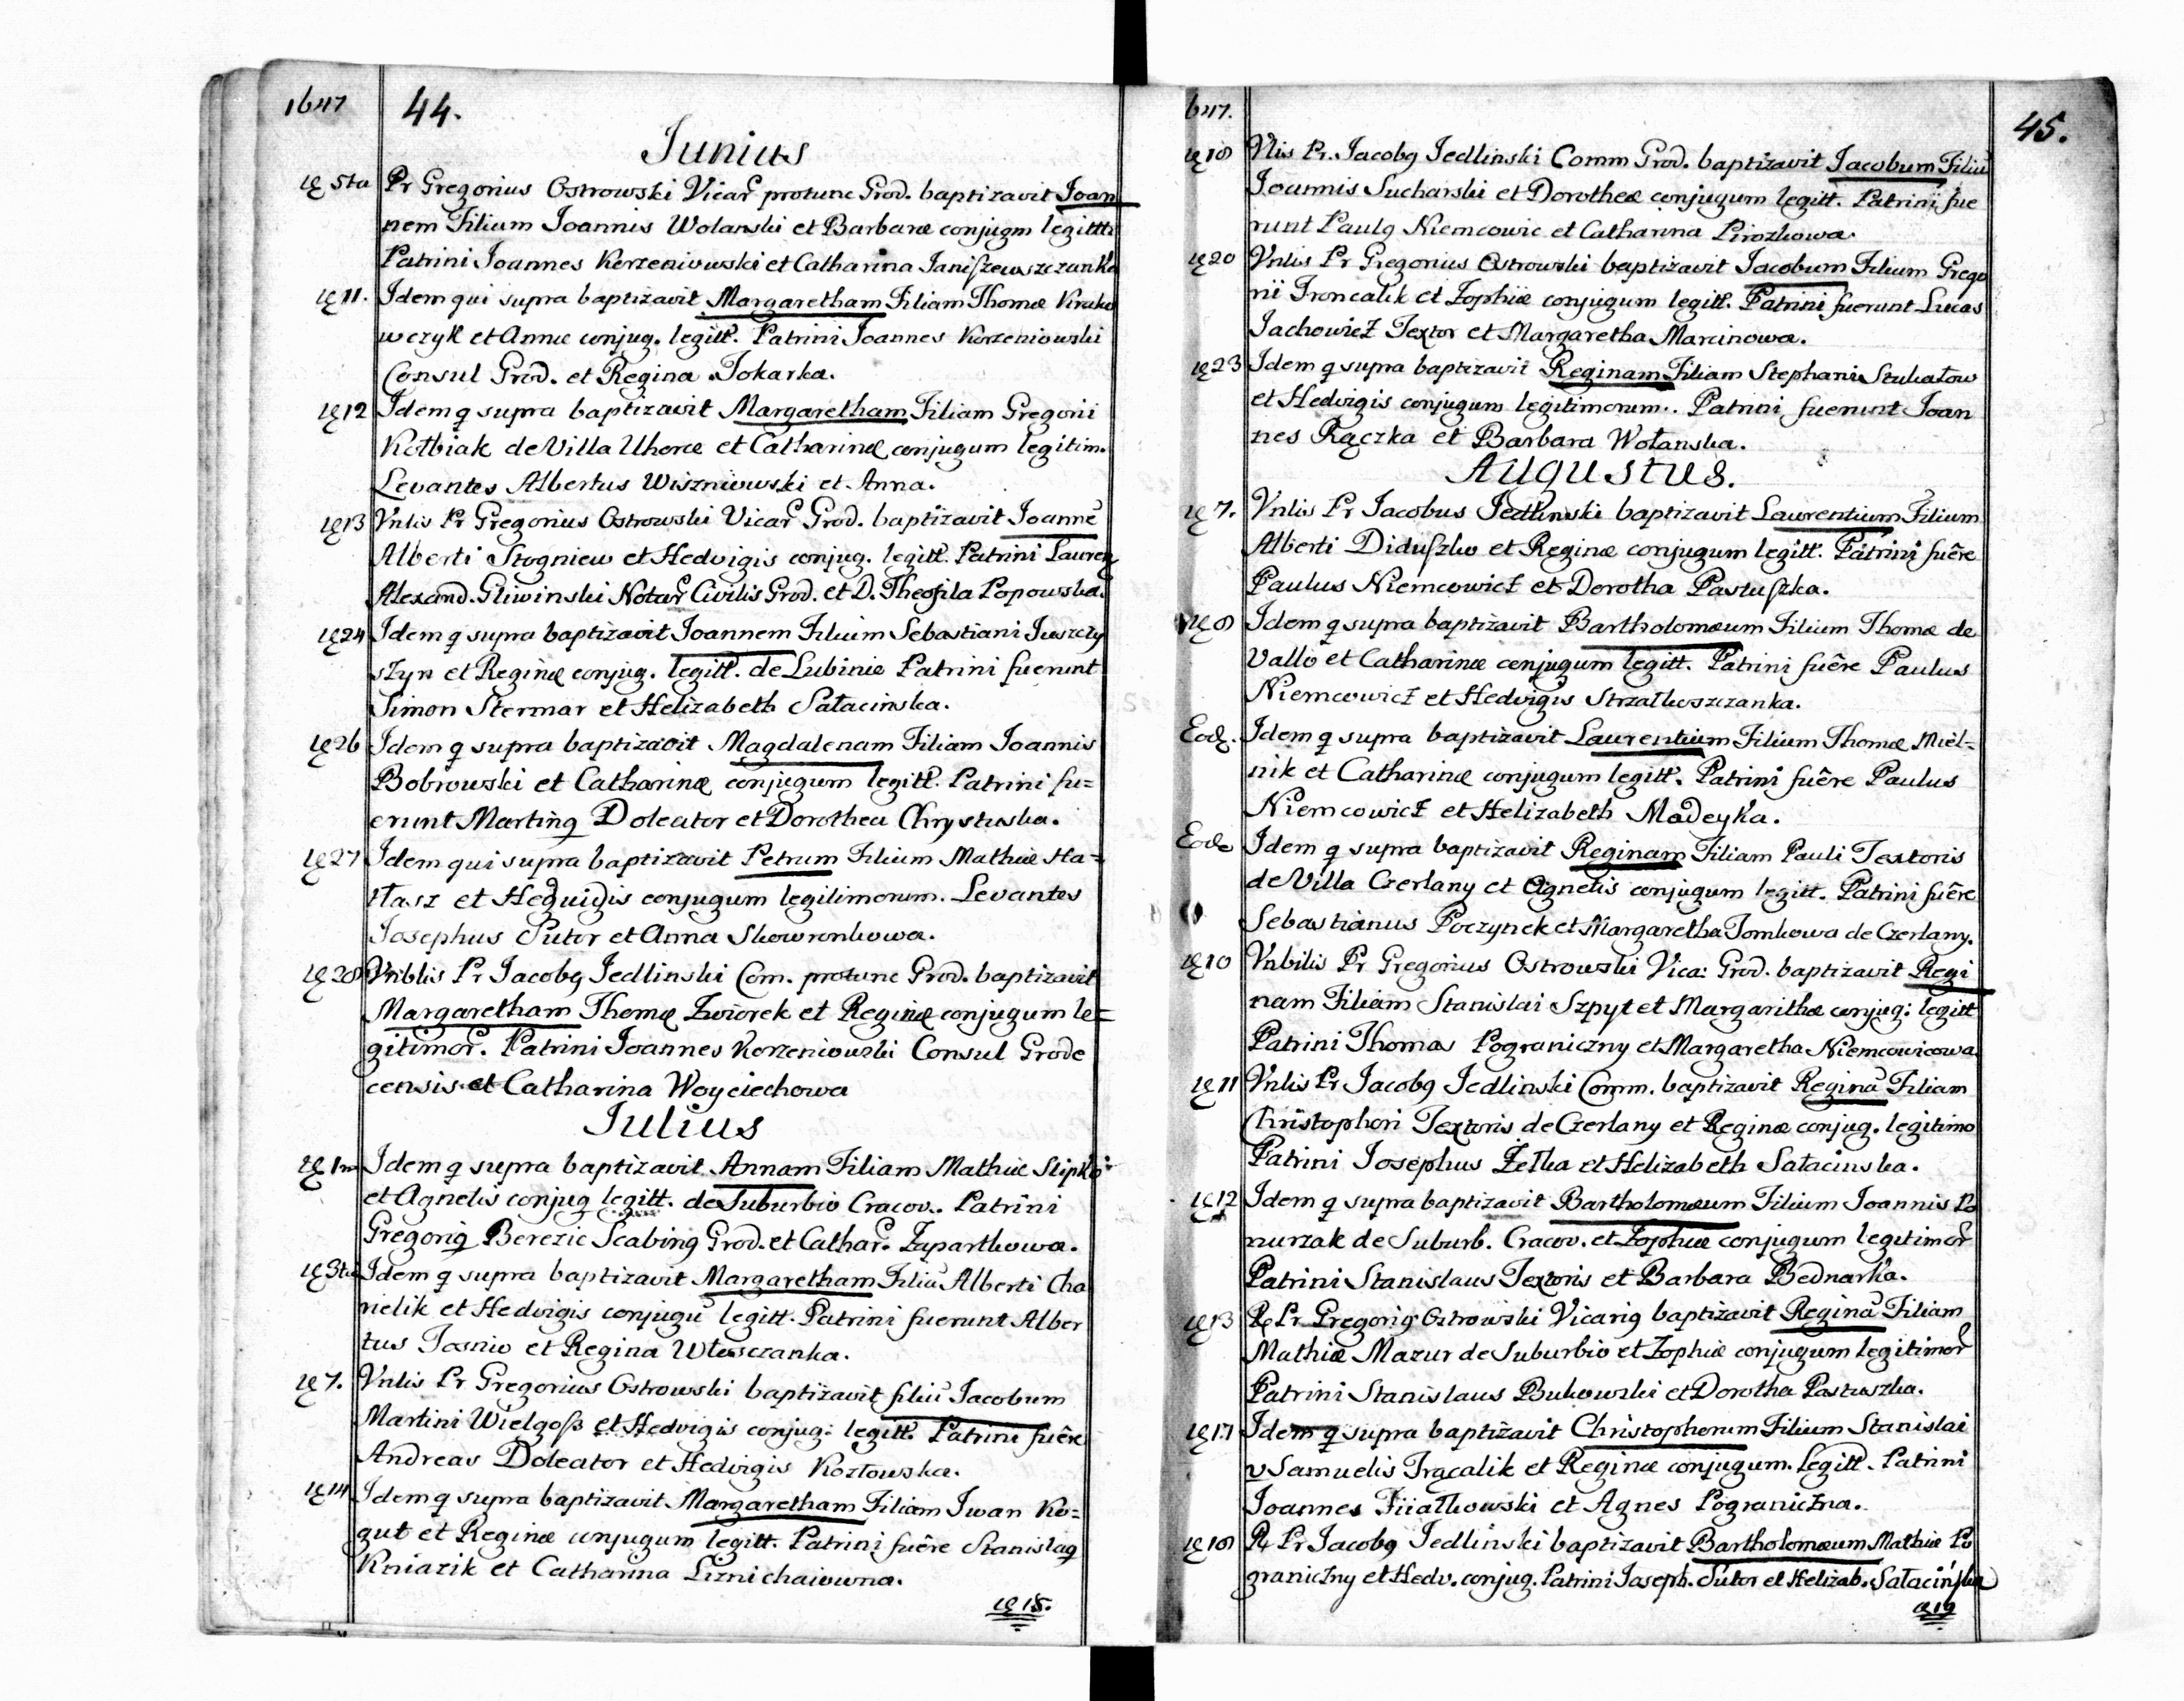 1647 44.
Junius
5ta Pr Gregorius Ostrowski Vicar protunc Grod. baptizavit Joan
nem Filium Joannis Wolanski et Barbaræ conjugm legittt
Patrini Joannes Korzeniowski et Catharina Janiszewszczanka
11. Idem qui supra baptizavit Margaretham Filiam Thomæ Krako
wczyk et Annæ conjug. legitt. Patrini Joannes Korzeniowski
Consul Grod. et Regina Tokarka.
12 Idem q supra baptizavit Margaretham Filiam Gregorii
Kotbiak de Villa Uhorce et Catharinæ conjugum legitim.
Levantes Albertus Wiszniowski et Anna.
13 Vnlis Pr Gregorius Ostrowski Vicar Grod. baptizavit Joanne
Alberti Stogniew et Hedvigis conjug. legitt. Patrini Lauren
Alexand. Gliwinski Notar Civilis Grod. et D. Theofila Popowska.
24 Idem q supra baptizavit Joannem Filium Sebastiani Juszczy
szyn et Reginæ conjug. legitt. de Lubinie Patrini fuerunt
Simon Stermar et Helizabeth Sałacinska.
26 Idem q supra baptizavit Magdalenam Filiam Joannis
Bobrowski et Catharinæ conjugum legitt. Patrini fu=
erunt Martinq Doleator et Dorothea Chrystuska.
27 Idem qui supra baptizavit Petrum Filium Mathiæ Ha=
łasz et Heduigis conjugum legitimorum. Levantes
Josephus Sutor et Anna Skowronkowa.
28 Vnblis Pr Jacobq Jedlinski Com. protunc Grod. baptizavit
Margaretham Thomæ Zwiorek et Reginæ conjugum le=
gitimor. Patrini Joannes Korzeniowski Consul Grode
censis et Catharina Woyciechowa
Julius
1ma Idem q supra baptizavit Annam Filiam Mathiæ Slipko
et Agnetis conjug legitt. de Suburbio Cracov. Patrini
Gregoriq Berezic Scabinq Grod. et Cathar. Zaparthowa.
3tia Idem q supra baptizavit Margaretham Filiu Alberti Cha
rielik et Hedvigis conjugu legitt. Patrini fuerunt Alber
tus Jasnio et Regina
7. Vnlis Pr Gregorius Ostrowski baptizavit filiu Jacobum
Martini Wielgosz et Hedvigis conjug: legitt. Patrini fuêre
Andreas Doleator et Hedvigis Kozłowska.
14 Idem q supra baptizavit Margaretham Filiam Iwan Ko=
gut et Reginæ conjugum legitt. Patrini fuêre Stanislaq
Kniazik et Catharina Liznichaiowna.
18.
647. 45.
18 Vlis Pr. Jacobq Jedlinski Comm Grod. baptizavit Jacobum Filiu
Joannis Sucharski et Dorotheæ conjugum legitt. Patrini fue
runt Paulq Niemcowic et Catharina Pirozkowa.
20 Vnlis Pr Gregorius Ostrowski baptizavit Jacobum Filium Grego
rii Troncalik et Zophiæ conjugum legitt. Patrini fuerunt Lucas
Jachowicz Textor et Margaretha Marcinowa.
23 Idem q supra baptizavit Reginam Filiam Stephani Stukałow
et Hedvigis conjugum legitimorum. Patrini fuerunt Joan
nes Rączka et Barbara Wołanska.
Augustus.
7. Vnlis Pr Jacobus Jedlinski baptizavit Laurentium Filium
Alberti Diduszko et Reginæ conjugum legitt. Patrini fuêre
Paulus Niemcowicz et Dorotha Pastuszka.
8 Idem q supra baptizavit Bartholomæum Filium Thomæ de
Vallo et Catharinæ conjugum legitt. Patrini fuêre Paulus
Niemcowicz et Hedvigis Strzałkoszczanka.
Eod. Idem q supra baptizavit Laurentium Filium Thomæ Miel-
nik et Catharinæ conjugum legitt. Patrini fuêre Paulus
Niemcowicz et Helizabeth Madeyka.
Eode Idem q supra baptizavit Reginam Filiam Pauli Textoris
de Villa Czerlany et Agnetis conjugum legitt. Patrini fuêre
Sebastianus Poczynek et Margaretha Tomkowa de Czerlany.
10 Vnbilis Pr Gregorius Ostrowski Vica: Grod. baptizavit Regi
nam Filiam Stanislai Szpyt et Margarithæ conjug: legitt
Patrini Thomas Pograniczny et Margaretha Niemcowicowa
11 Vnlis Pr Jacobq Jedlinski Comm. baptizavit Regina Filiam
Christophori Textoris de Czerlany et Reginæ conjug. legitimo
Patrini Josephus Zetka et Helizabeth Sałacinska.
12 Idem q supra baptizavit Bartholomæum Filium Joannis Po
nurzak de Suburb. Cracov. et Zophiæ conjugum legitimor
Patrini Stanislaus Textoris et Barbara Bednarka.
13 R Pr Gregoriq Ostrowski Vicariq baptizavit Regina Filiam
Mathiæ Mazur de Suburbio et Zophiæ conjugum legitimor
Patrini Stanislaus Bukowski et Dorotha Pastuszka.
17 Idem q supra baptizavit Christophorum Filium Stanislai
v Samuelis Trącalik et Reginæ conjugum. legitt. Patrini
Joannes Fiiałkowski et Agnes Pograniczna.
18 R Pr Jacobq Jedlinski baptizavit Bartholomæum Mathiæ Po
graniczny et Hedv. conjug. Patrini Joseph. Sutor et Helizab. Sałacińska
19